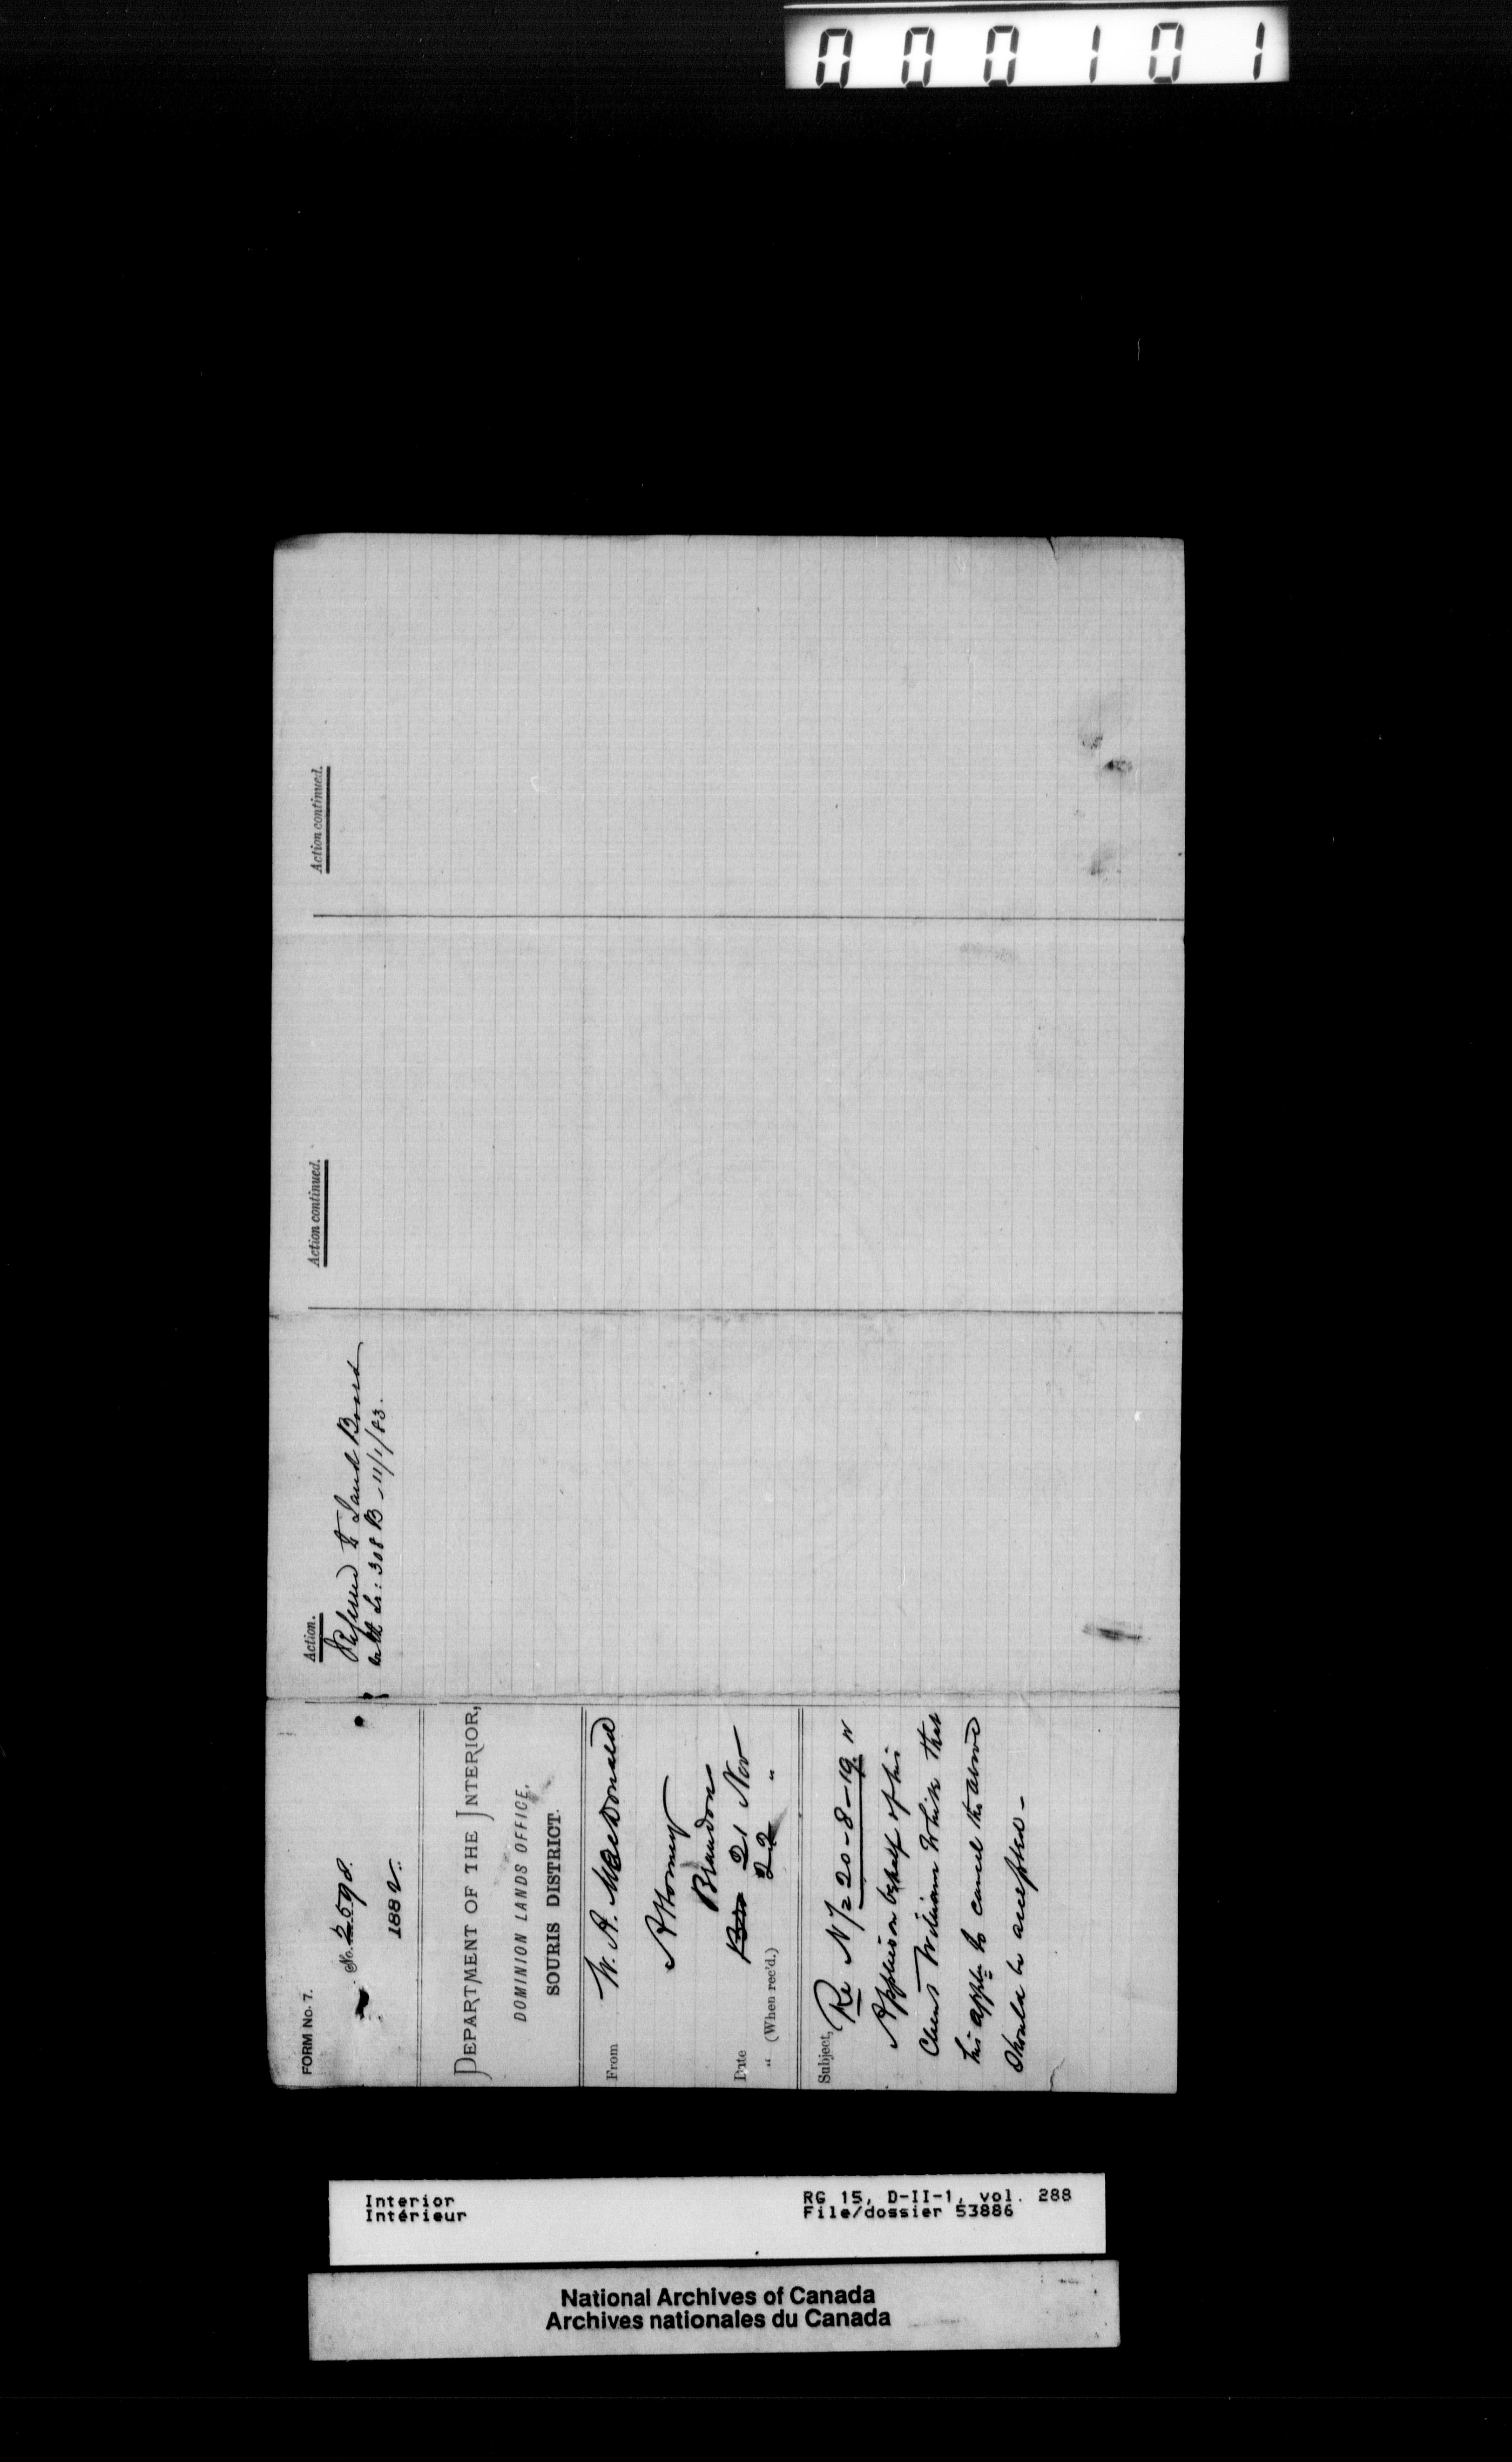 000101
FORM No. 7.
No. 2598.
1882.
DEPARTMENT OF THE INTERIOR,
DOMINION LANDS OFFICE,
SOURIS DISTRICT.
From W. A. MacDonald
Attorney
Brandon
Date 21 Nov
" (When rec'd.) 22 "
Subject, Re N½ 20-8-19 W
Applies on behalf of his
Client William White that
his appln to cancel the above
should be accepted -
Action.
Refered to Land Board
with Lr: 308 B - 11/1/83.
Action continued.
Action continued.
Interior
Intérieur
RG 15, D-II-1, vol. 288
File/dossier 53886
National Archives of Canada
Archives nationales du Canada